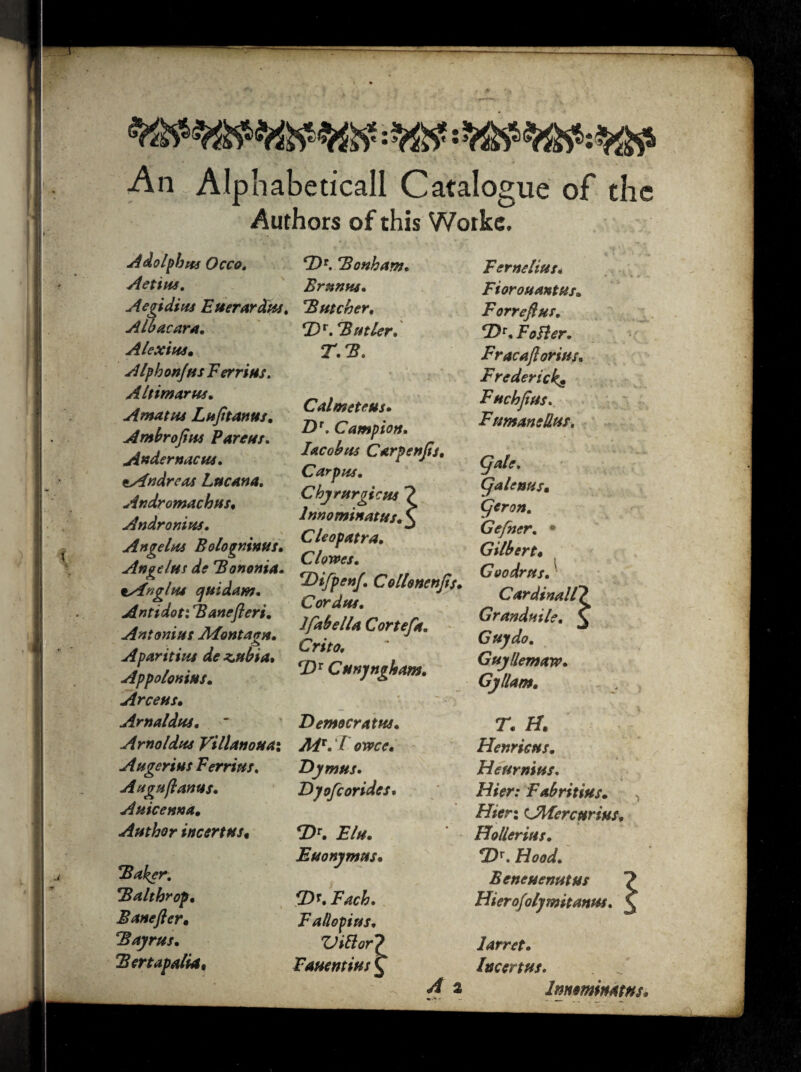 An Alphabeticall Catalogue of the
Authors of this Worke.
Adolphus Occo.
Aetius.
Aegidius Euerardus.
Albacara.
Alexius.
AlphonſusFerrius.
Altimarus.
Amatus Luſitanus.
Ambroſius Pareus.
Andernacus.
Andreas Lucana.
Andromachus.
Andronius.
Angelus Bologninus.
Angelus de Bononia.
Anglus quidam.
Antidot: Baneſteri.
Antonius Montagn.
Aparitius de zubia.
Appolonius.
Arceus.
Arnaldus.
Arnoldus Villanoua:
Augerius Ferrius.
Auguſtanus.
Auicenna.
Author incertus.
Baker.
Balthrop.
Baneſter.
Bayrus.
Bertapalia.
Dr. Bonham.
Brunus.
Butcher.
Dr. Butler.
T. B.
Calmeteus.
Dr. Campion.
Iacobus Carpenſis.
Carpus.
Chyrurgicus }
Innominatus. }
Cleopatra.
Clowes.
Diſpenſ. Collonenſis.
Cordus.
Iſabella Corteſa.
Crito.
Dr Cunyngham.
Democratus.
Mr. Dowce.
Dymus.
Dyoſcorides.
Dr. Elu.
Euonymus.
Dr. Fach.
Fallopius.
Victor }
Fauentius }
Fernelius.
Fiorouantus.
Forreſtus.
Dr. Foſter.
Fracaſtorius.
Frederick.
Fuchſius.
Fumanellus.
Gale.
Galenus.
Geron.
Geſner.
Gilbert.
Goodrus.
Cardinall }
Granduile. }
Guydo.
Guyllemaw.
Gyllam.
T. H.
Henricus.
Heurnius.
Hier: Fabritius.
Hier: Mercurius.
Hollerius.
Dr. Hood.
Beneuenutus }
Hieroſolymitanus. }
Iarret.
Incertus.
A 2 Innominatus.